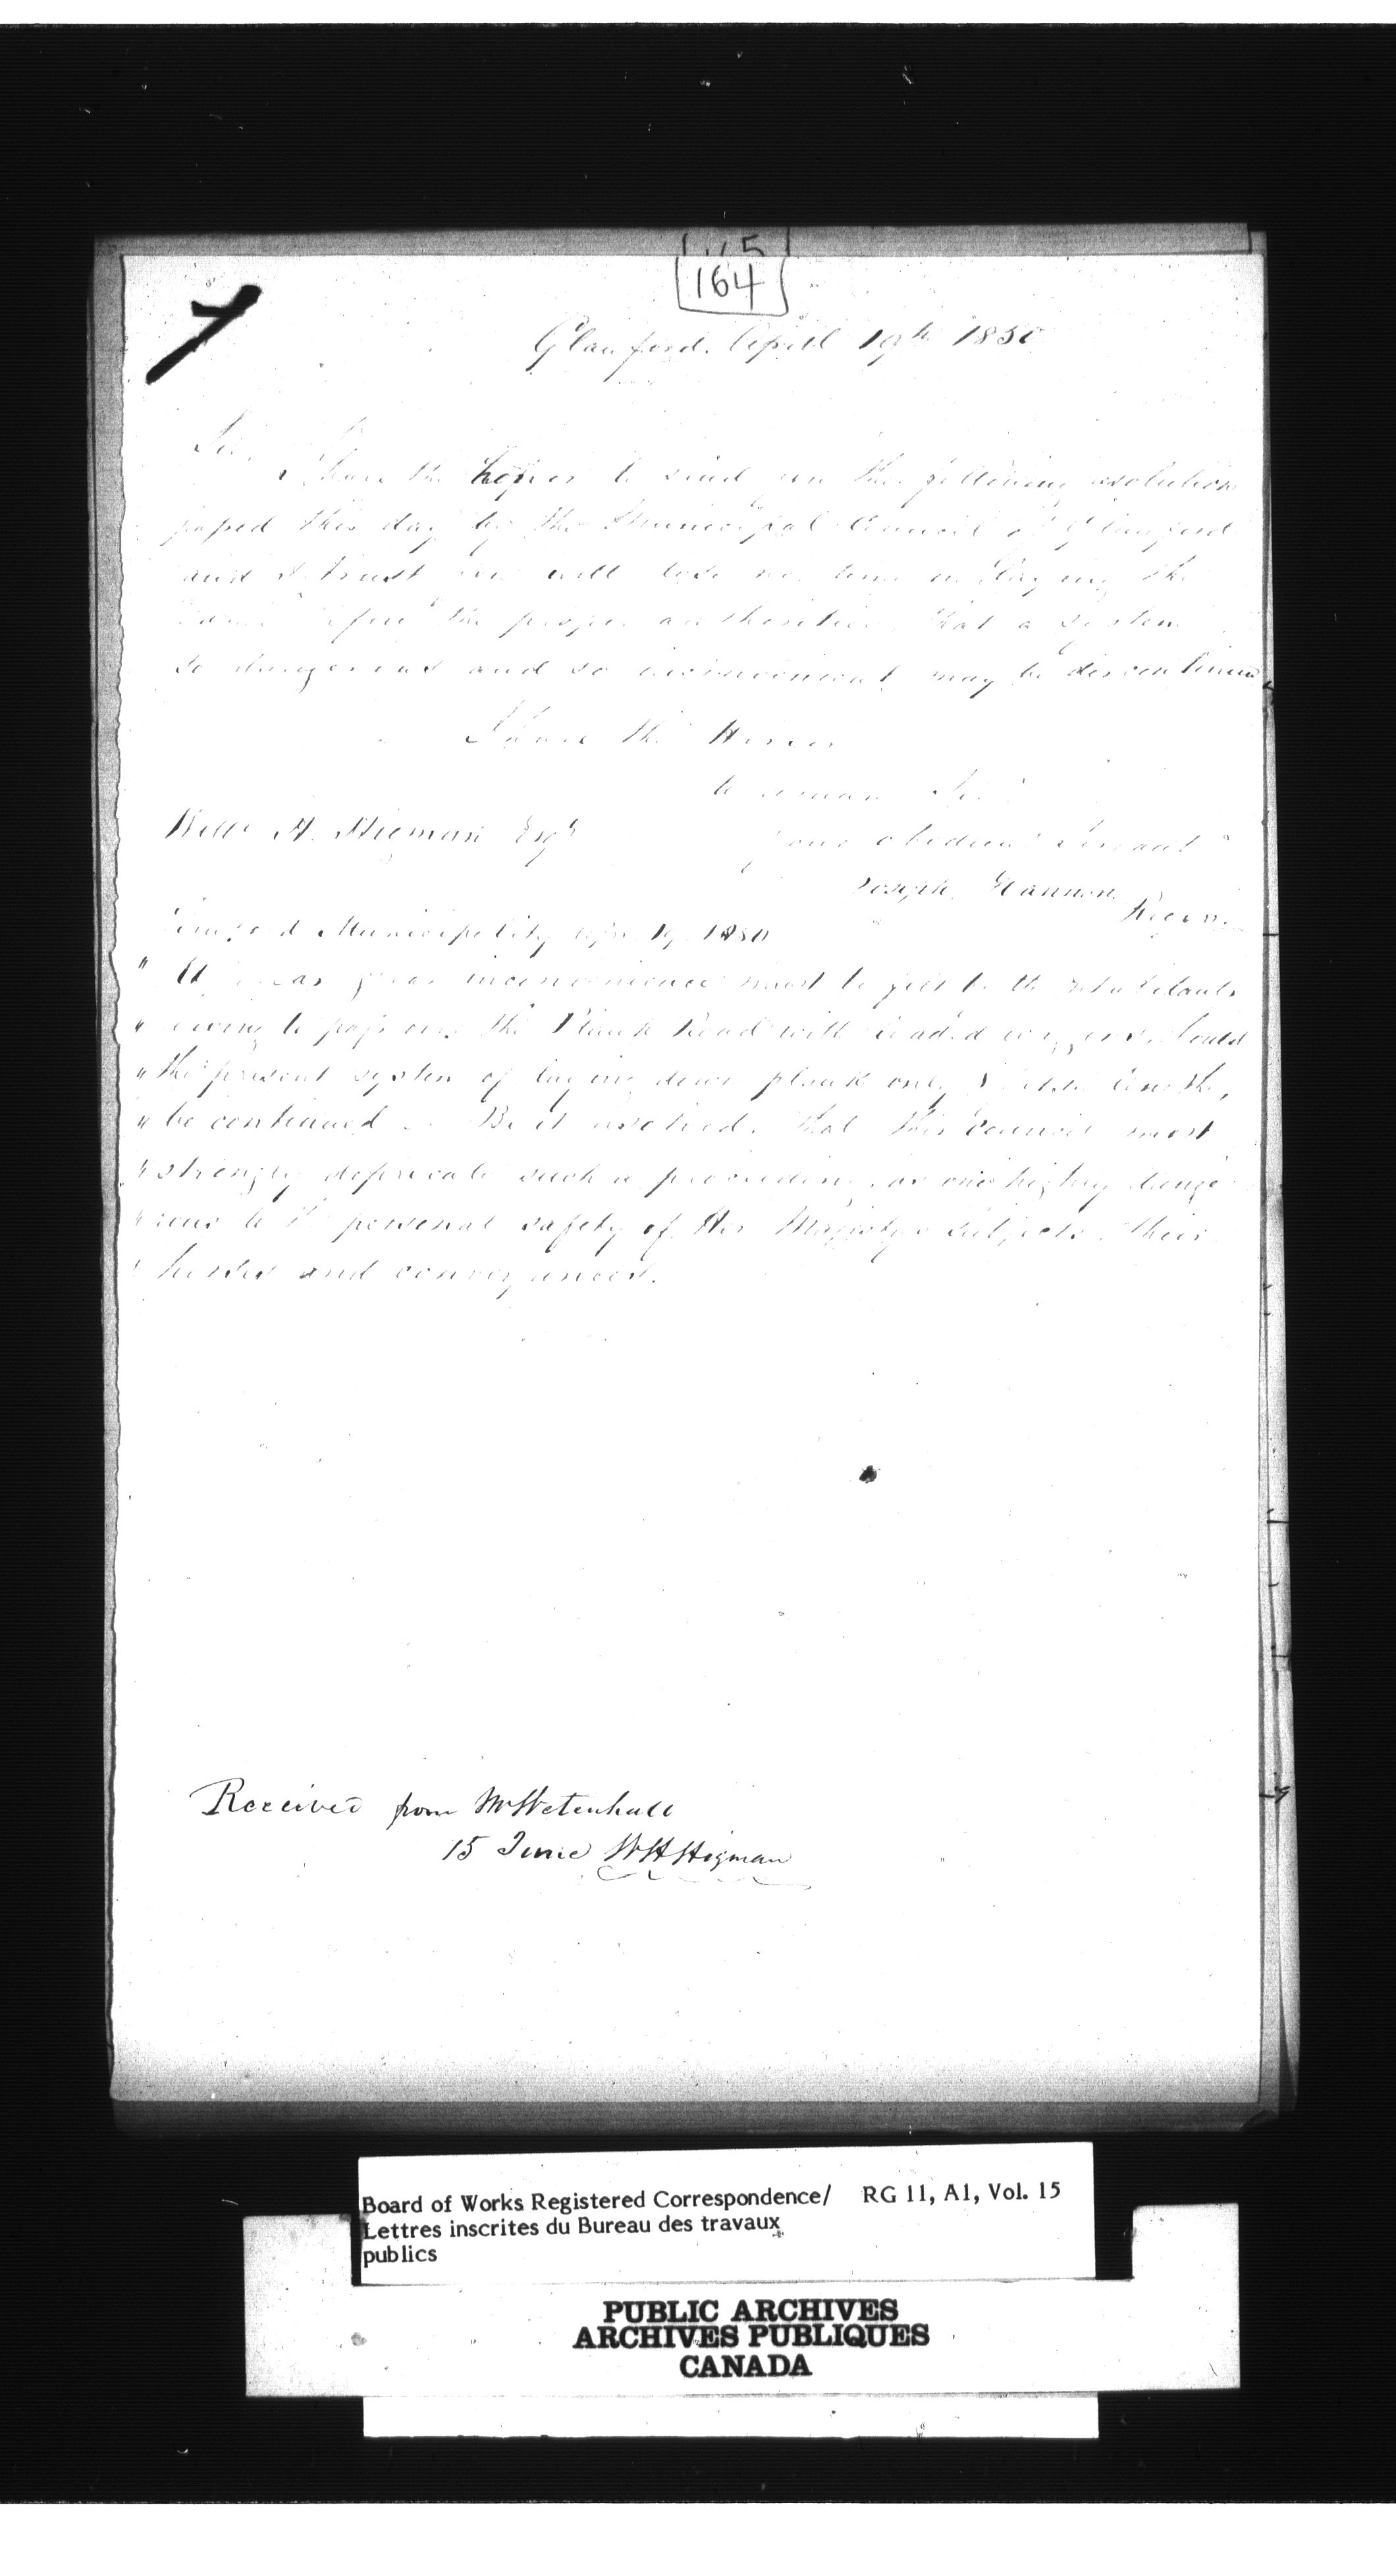 164
Glanford. April 19th 1850
Sir,
I have the honor to send you the following resolution
passed this day by the Municipal Council of Glanford
and I trust you will lose no time in laying the
same before the proper authorities that a system
so dangerous and so inconvenient may be discontinued
I have the Honor
to remain Sir
your obedient Servant
Willm H. Higman Esqr
Joseph Hannon
Reeve
Glanford Municipality Apr 19 1850
" Whereas great inconvenience must be felt by the inhabitants
" having to pass over the Plank Road with loaded waggons should
" the present system of laying down plank only feet in length,
" be continued Be it resolved. that this Council most
" strongly deprecate such a proceeding, as one highly dange
" rous to the personal safety of Her Majesty's Subjects, their
" horses and conveyances.
Received from Mr Wetenhall
15 June WHHigman
Board of Works Registered Correspondence/ RG 11, A1, Vol. 15
Lettres inscrites du Bureau des travaux
publics
PUBLIC ARCHIVES
ARCHIVES PUBLIQUES
CANADA